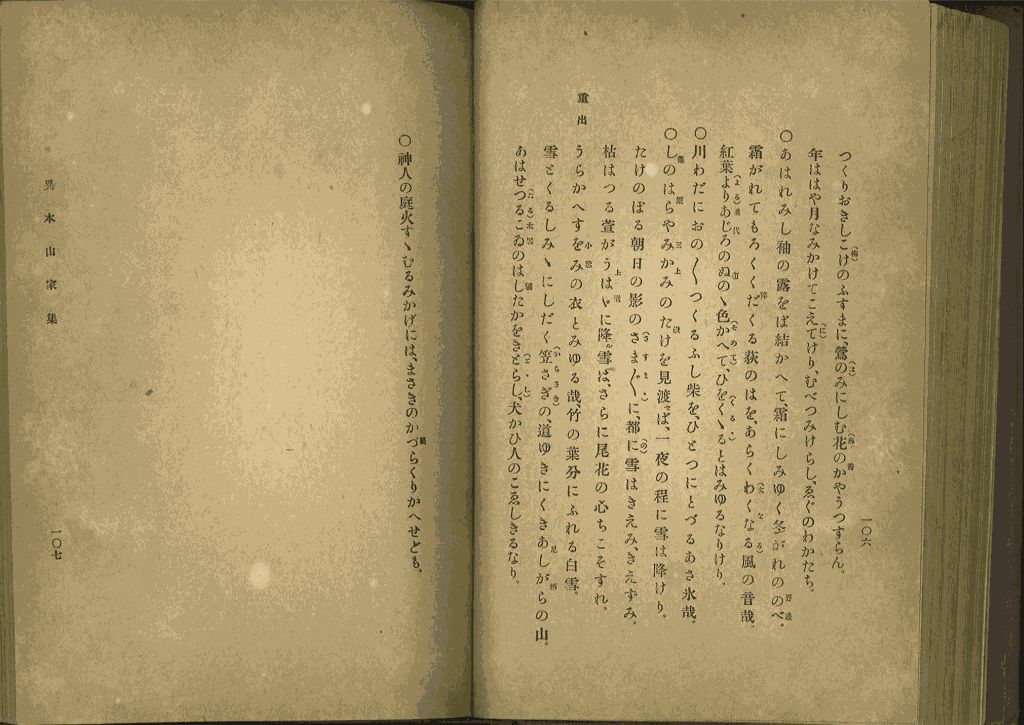 つくりおきしこけのふすまに、鶯のみにしむ花のかやうつすらん。
年ははや月なみかけてこえてけり、むべつみけらし、ゑぐのわかたち。
〇あはれみし袖の露をば結かへて、霜にしみゆく冬がれののべ。
霜がれてもろくくだくる荻のはを、あらくわくなる風の音哉。
紅葉よりあじろのぬのゝ色かへて、ひをくゝるとはみゆるなりけり。
〇川わだにおの〳〵つくるふし柴を、ひとつにとづるあさ氷哉。
〇しのはらやみかみのたけを見渡せば、一夜の程に雪は降けり。
たけのぼる朝日の影のさま〴〵に、都に雪はきえみ、きえずみ。
枯はつる萱がうはゞに降ル雪ば、さらに尾花の心ちこそすれ。
重出
うらかへすをみの衣とみゆる哉、竹の葉分にふれる白雪。
雪とくるしみゝにしだく笠さぎの、道ゆきにくきあしがらの山。
あはせつるこゐのはしたかをきとらし、犬かひ人のこゑしきるなり。
一〇六
〇神人の庭火すゝむるみかげには、まさきのかづらくりかへせども。
異本山家集
一〇七